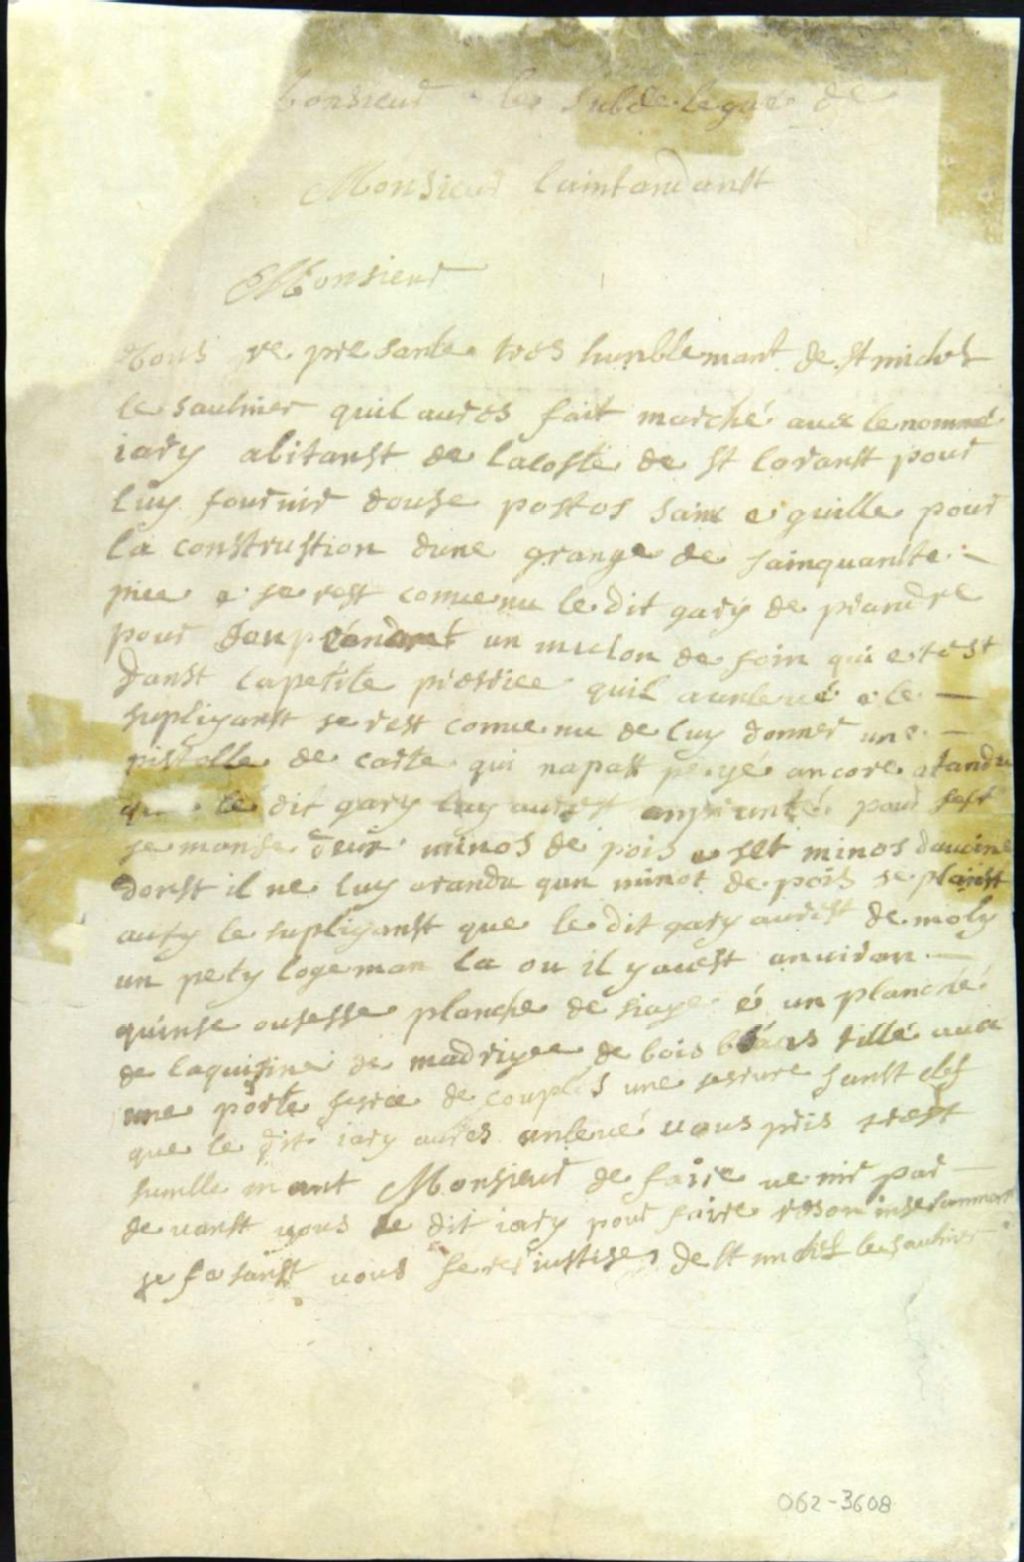 Monsieur le Subdelegué de
Monsieur laintandantt
Monsieur
Vous re pre sante tres humblemant de st michel
le saulnier quil aures fait marché auec le nommé
iary abitanst de lacoste de st loranst pour
luy fournir douse postos sainc e quille pour
la construstion dune grange de sainquante
piee e se rest comuenu le dit gary de prandre
pour un mulon de foin qui etest
danst lapetite prerriee quil a anleué e le
supliyanst se rest comuenu de luy donner une
pistolle de carte qui napast peyé ancore atandu
que le dit gary luy aurest anprunté pour sest
se manse deux minos de pois e set minos dauoine
donst il ne luy arandu qun minot de pois se plainst
ausy le supliyanst que le dit gary aurest de moly
un pety logeman la ou il y auest anuiron
quinse ousesse planche de siage é un planché
de laquisine de madriyee de bois tillé auec
une porte de couples une serrure sanst clef
que le dit iary aures anleué uous pris trest
humble mant Monsieur de faire ue nir par
de uanst uous le dit iary pour faire reson insesammant
se fesanst uous feres iustise de st michel le saulnier
062-3608